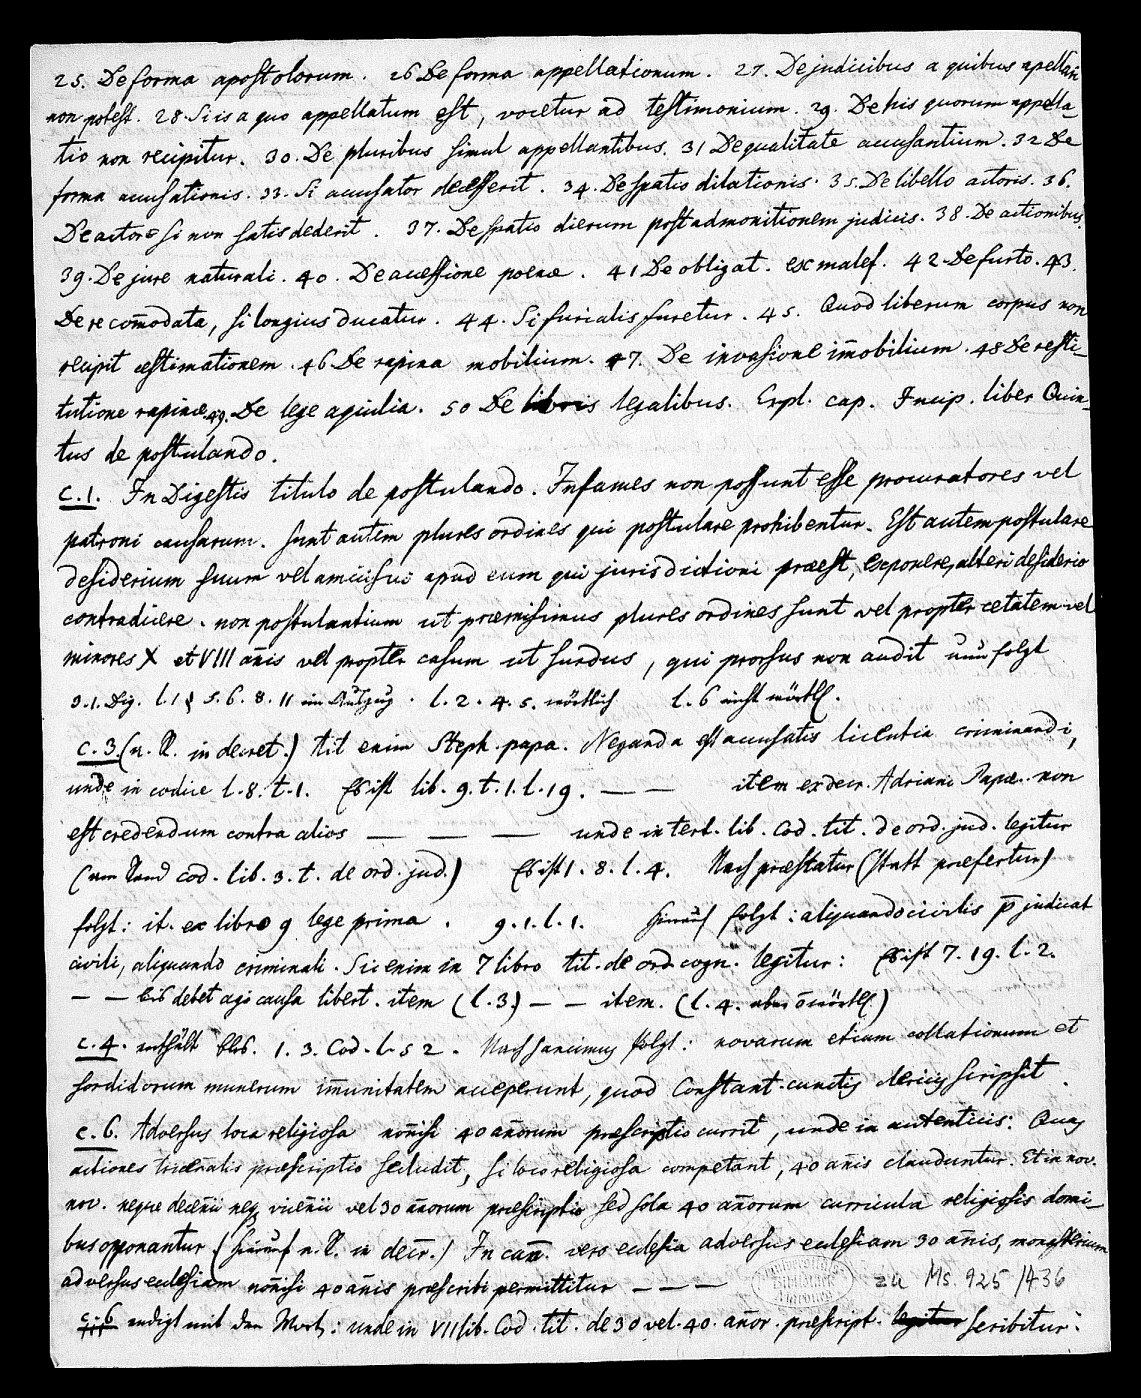 25. De forma apostolorum. 26 De forma appellationum. 27. De judicibus a quibus apellari
non potest. 28 Si is a quo appellatum est, vocetur ad testimonium. 29. De his quorum appella-
tio non recipitur. 30. De pluribus simul appellantibus. 31 De qualitate accusantium. 32 De
forma accusationis. 33. Si accusator decesserit. 34. De spatio dilationis. 35. De libello actoris. 36.
De actore si non satis dederit. 37. De spatio dierum post admonitionem judicis. 38. De actionibus.
39. De jure naturali. 40. De accessione poenae. 41 De obligat. ex malef. 42. De furto. 43.
De re com̄odata, si longius ducatur. 44. Si furialis furetur. 45. Quod liberum corpus non
recipit aestimationem. 46 De rapina mobilium. 47. De invasione im̄obilium. 48 De resti-
tutione rapinae 49. De lege aquilia. 50 De libris legalibus. Expl. cap. Incip. liber Quin-
tus de postulando.
c. 1. In Digestis titulo de postulando. Infames non possunt esse procuratores vel
patroni causarum. Sunt autem plures ordines qui postulare prohibentur. Est autem postulare
desiderium suum vel amici sui apud eum qui jurisdictioni praeest, exponere, alteri desiderio
contradicere. non postulantium ut praemisimus plures ordines sunt vel propter aetatem vel
minores X et VIII an̄is vel propter casum ut surdus, qui prorsus non audit nun folgt
3. 1. Dig. l. 1 § 5. 6. 8. 11 im Auszug. l. 2. 4. 5. wörtlich l. 6 nicht wörtl.
c. 3 (n. R. in decret.) tit enim Steph. papa. Neganda est accusatis licentia criminandi,
unde in codice l. 8. t. 1. Es ist lib. 9. t. 1. l. 19. — — item ex decr. Adriani Papae. non
est credendum contra alios — — — unde in tert. lib. Cod. tit. de ord. jud. legitur
(am Rand cod. lib. 3. t. de ord. jud.) Es ist 1. 8. l. 4. Nach praestatur (statt praefertur)
folgt: it. ex libro 9 lege prima. 9. 1. l. 1. hierauf folgt: aliquando civilis p̄judicat
civili, aliquando criminali. Sic enim in 7 libro tit. de ord. cogn. legitur: Es ist 7. 19. l. 2.
— — bis debet agi causa libert. item (l. 3) — — item. (l. 4. aber wörtl.)
c. 4. enthält 1. 3. Cod. l. 52. Nach sancimus folgt: novarum etiam collationum et
sordidorum munerum im̄unitatem acceperunt, quod Constant. cunctis clericis scripsit.
c. 6. Adversus loca religiosa non̄isi 40 an̄orum praescriptio currit, unde in autenticis: Quas
actiones tricen̄alis praescriptio secludit, si loco religiosa competant, 40 an̄is clauduntur. Et in nov.
nov. neque decen̄ii neq vicen̄ii vel 30 an̄orum praescriptio sed sola 40 an̄orum curricula religiosis domi-
bus opponantur (hierauf n. R. in decr.) In can̄. vero ecclesia adversus ecclesiam 30 an̄is, monasterium
adversus ecclesiam non̄isi 40 an̄is praescribi permittitur — — — zu Ms. 925/436
c. 6 endigt mit den Wort: unde in VII lib. Cod. tit. de 30 vel. 40. an̄or. praescript. legitur scribitur: